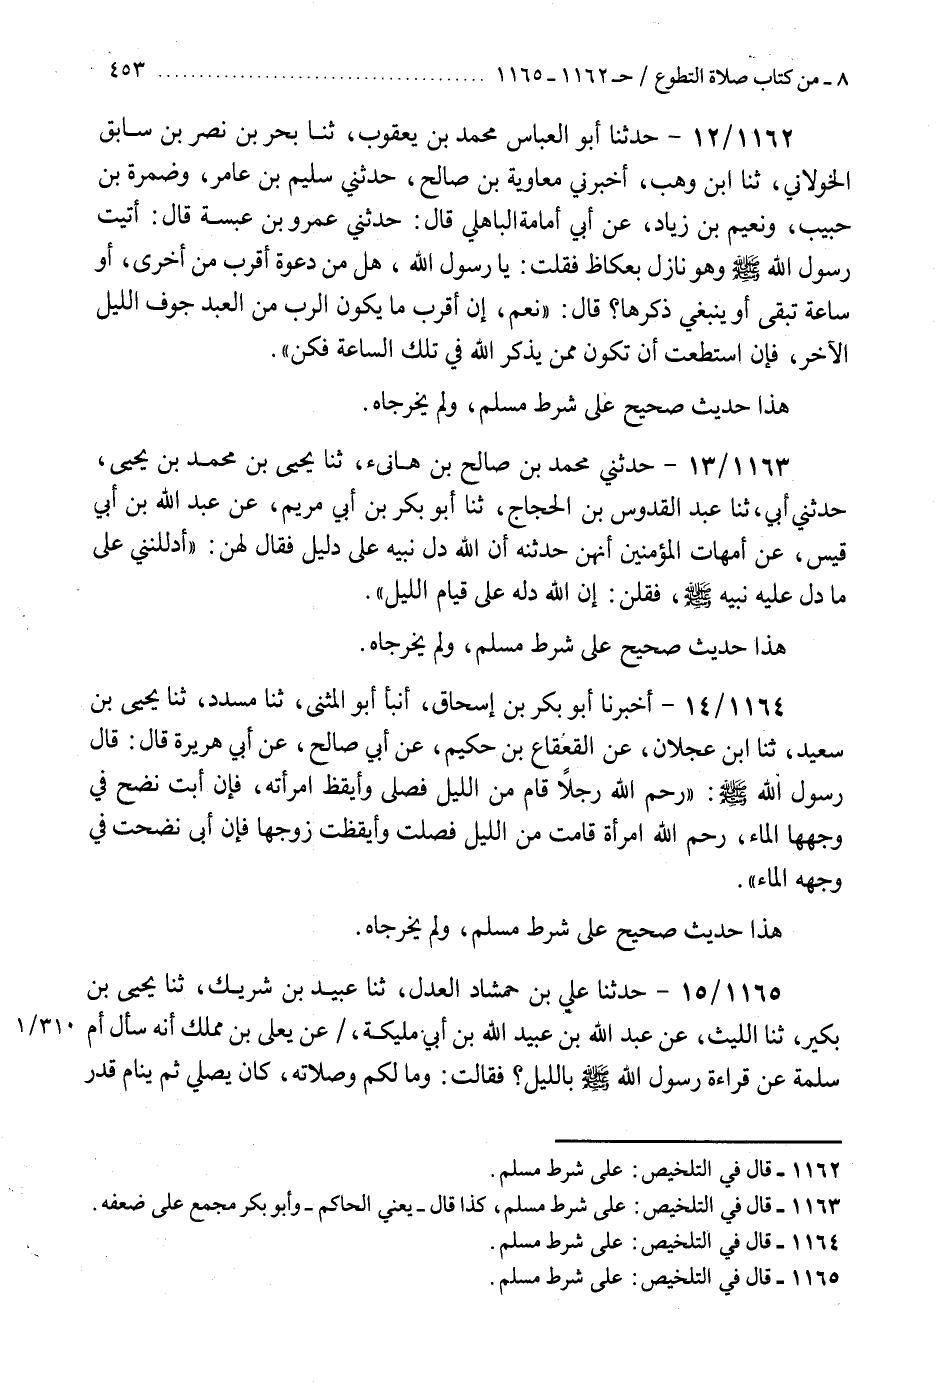 ٨ ـ من كتاب صلاة التطوع / حـ ١١٦٢ ـ ١١٦٥ ........................................ ٤٥٣
١٢/١١٦٢ - حدثنا أبو العباس محمد بن يعقوب، ثنا بحر بن نصر بن سابق
الخولاني، ثنا ابن وهب، أخبرني معاوية بن صالح، حدثني سليم بن عامر، وضمرة بن
حبيب، ونعيم بن زياد، عن أبي أمامة الباهلي قال: حدثني عمرو بن عبسة قال: أتيت
رسول الله ﷺ وهو نازل بعكاظ فقلت: يا رسول الله، هل من دعوة أقرب من أخرى، أو
ساعة تبقى أو ينبغي ذكرها؟ قال: «نعم، إن أقرب ما يكون الرب من العبد جوف الليل
الآخر، فإن استطعت أن تكون ممن يذكر الله في تلك الساعة فكن».
هذا حديث صحيح على شرط مسلم، ولم يخرجاه.
١٣/١١٦٣ - حدثني محمد بن صالح بن هانىء، ثنا يحيى بن محمد بن يحيى،
حدثني أبي، ثنا عبد القدوس بن الحجاج، ثنا أبو بكر بن أبي مريم، عن عبد الله بن أبي
قيس، عن أمهات المؤمنين أنهن حدثنه أن الله دل نبيه على دليل فقال لهن: «أدللنني على
ما دل عليه نبيه ﷺ، فقلن: إن الله دله على قيام الليل».
هذا حديث صحيح على شرط مسلم، ولم يخرجاه.
١٤/١١٦٤ - أخبرنا أبو بكر بن إسحاق، أنبأ أبو المثنى، ثنا مسدد، ثنا يحيى بن
سعيد، ثنا ابن عجلان، عن القعقاع بن حكيم، عن أبي صالح، عن أبي هريرة قال: قال
رسول الله ﷺ: «رحم الله رجلاً قام من الليل فصلى وأيقظ امرأته، فإن أبت نضح في
وجهها الماء، رحم الله امرأة قامت من الليل فصلت وأيقظت زوجها فإن أبى نضحت في
وجهه الماء».
هذا حديث صحيح على شرط مسلم، ولم يخرجاه.
١٥/١١٦٥ - حدثنا علي بن حمشاد العدل، ثنا عبيد بن شريك، ثنا يحيى بن
بكير، ثنا الليث، عن عبد الله بن عبيد الله بن أبي مليكة، / عن يعلى بن مملك أنه سأل أم ١/٣١٠
سلمة عن قراءة رسول الله ﷺ بالليل؟ فقالت: وما لكم وصلاته، كان يصلي ثم ينام قدر
١١٦٢ ـ قال في التلخيص: على شرط مسلم.
١١٦٣ ـ قال في التلخيص: على شرط مسلم، كذا قال ـ يعني الحاكم ـ وأبو بكر مجمع على ضعفه.
١١٦٤ ـ قال في التلخيص: على شرط مسلم.
١١٦٥ ـ قال في التلخيص: على شرط مسلم.